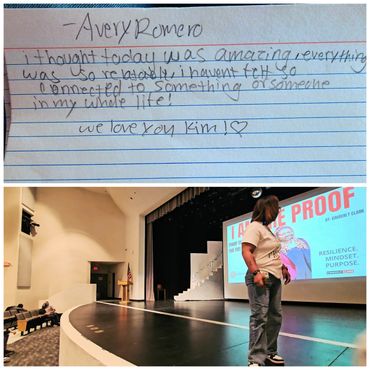 -Avery Romero
i thought today was amazing, everything
was so relatable, i havent felt so
connected to something or someone
in my whole life!
we love you Kim!♡
I AM THE PROOF
BY: KIMBERLY CLARK
RESILIENCE.
MINDSET.
PURPOSE.